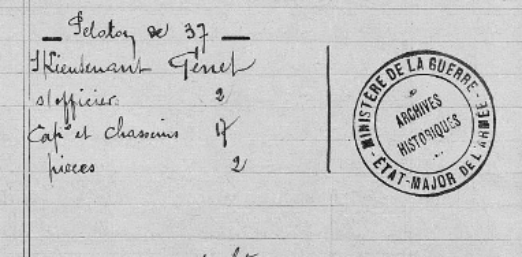 Peloton de 37
S/Lieutenant Perret
s/officiers 2
Cap^x et chasseurs 17
pièces 2
MINISTÈRE DE LA GUERRE
ARCHIVES
HISTORIQUES
ÉTAT-MAJOR DE L'ARMÉE